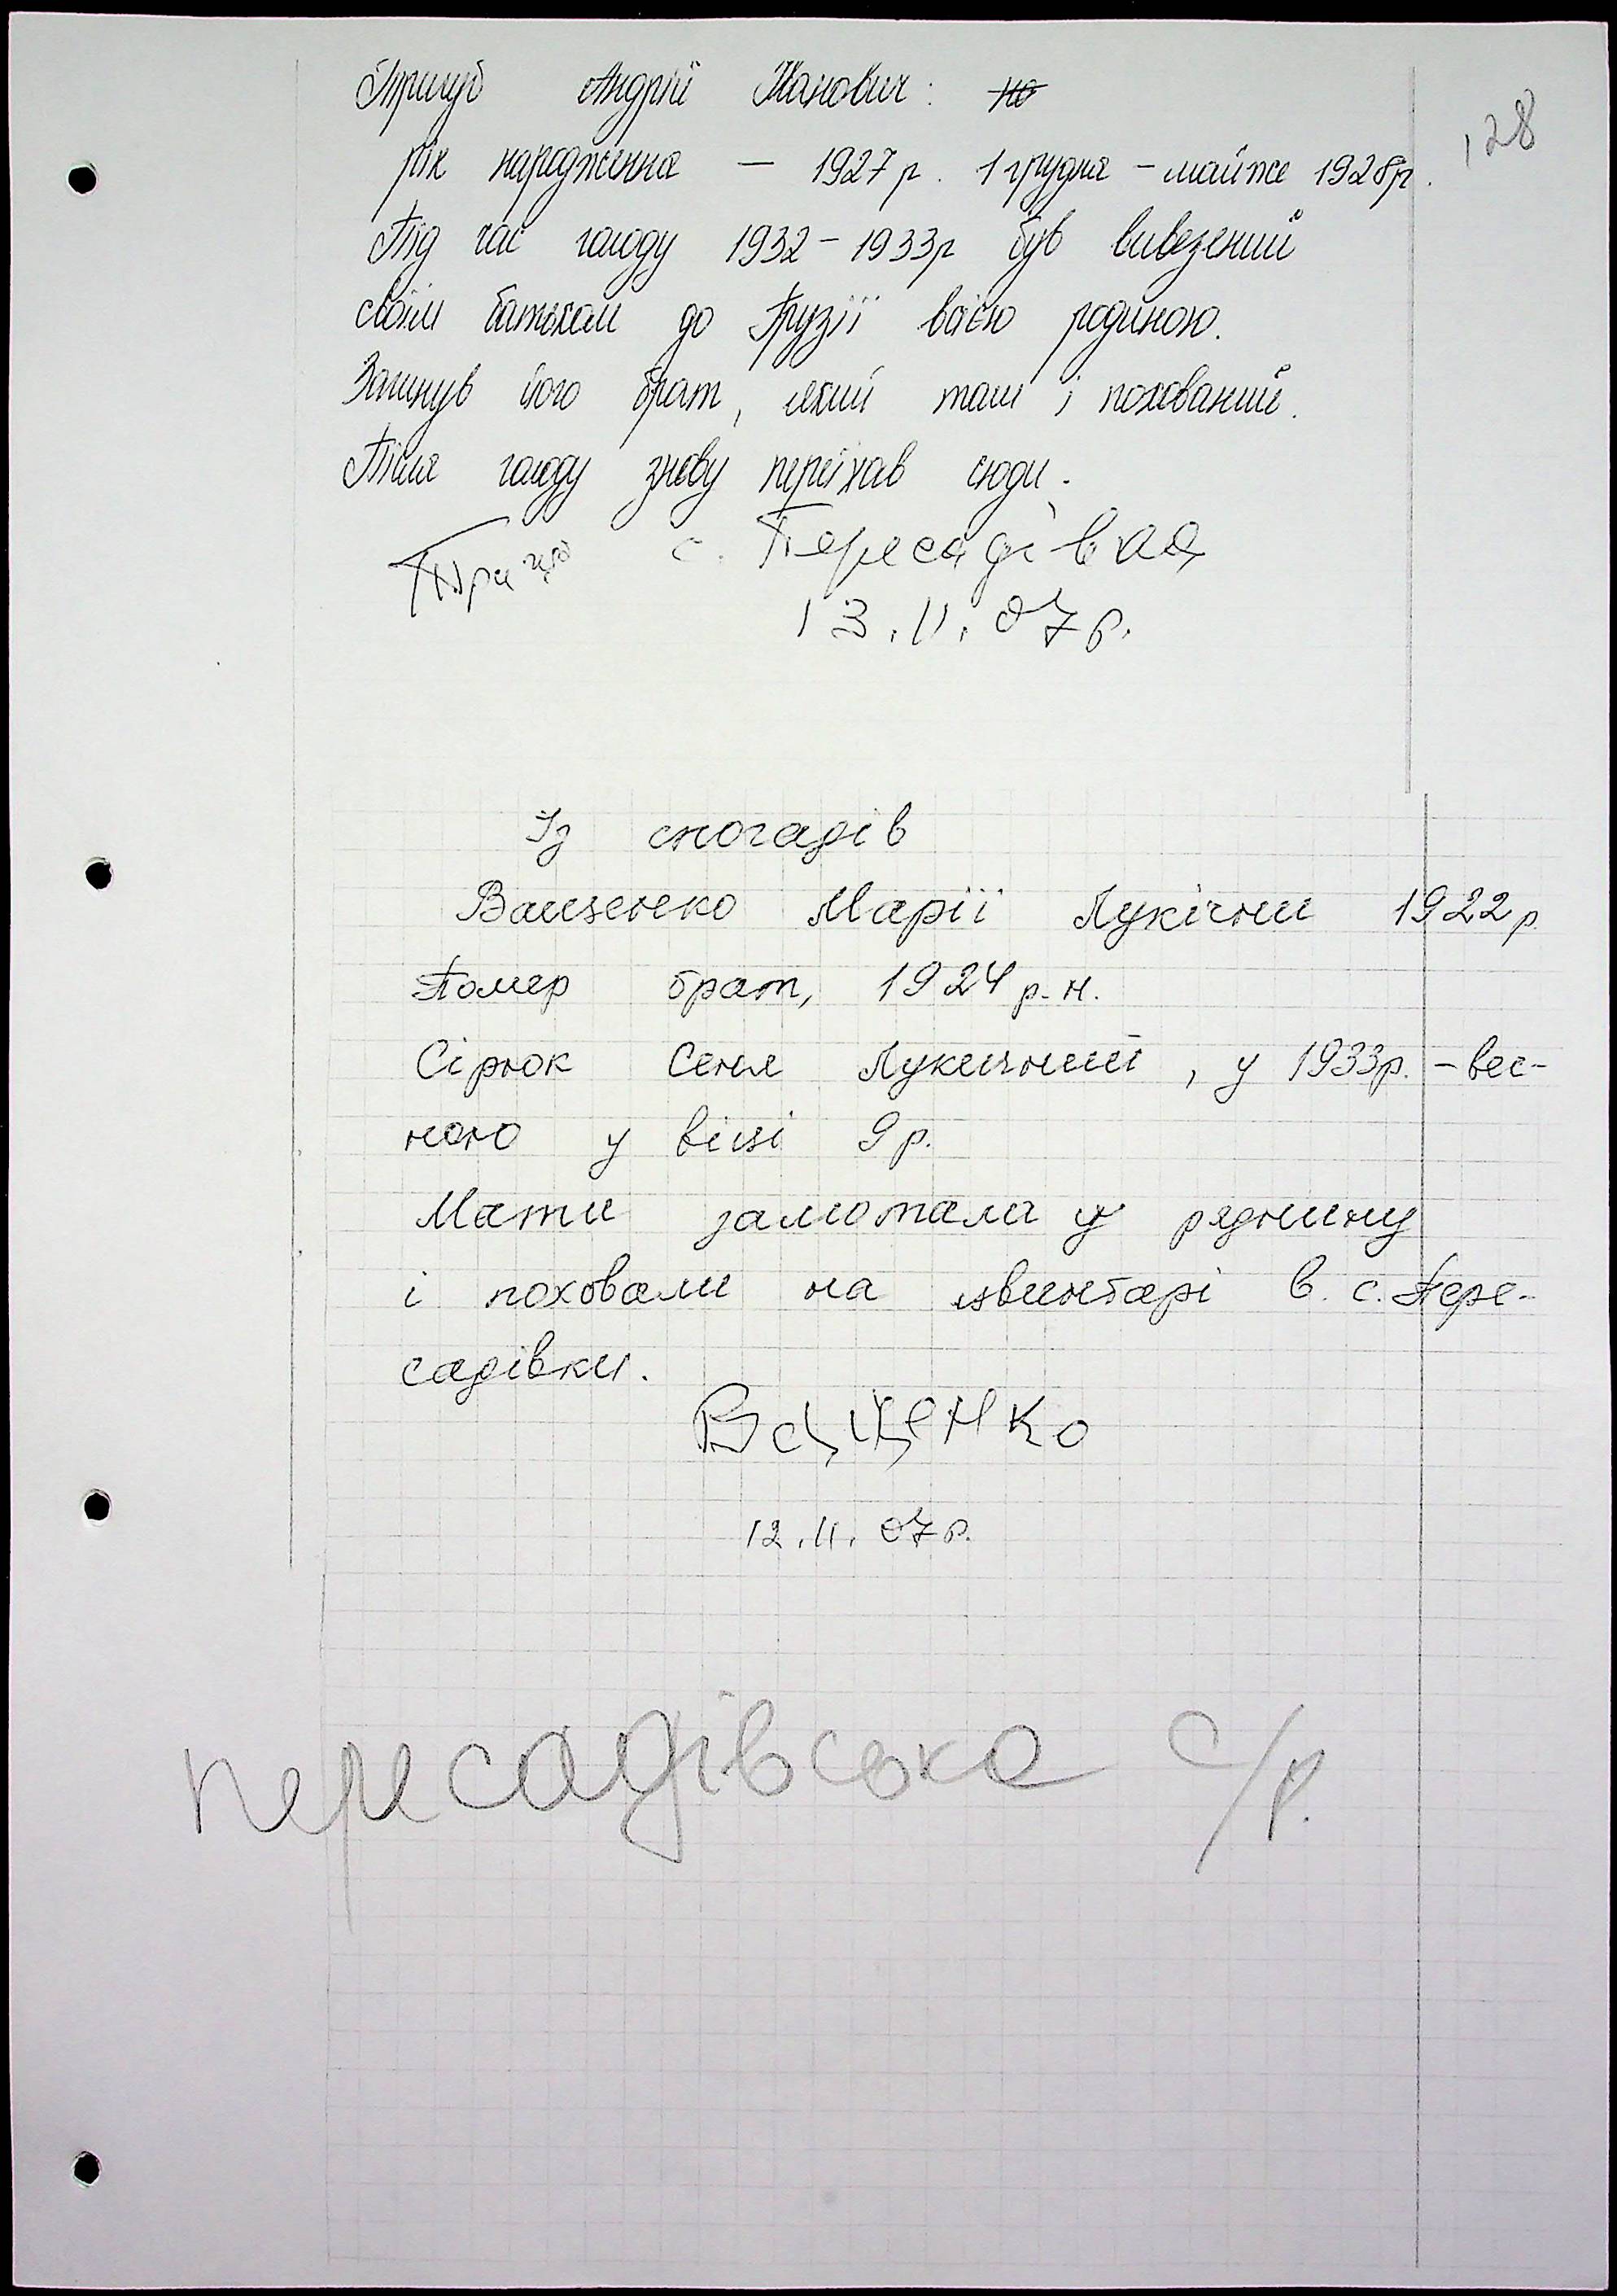 128
Трищуб Андрій Іванович: но
рік народження — 1927 р. 1 грудня – майже 1928р.
Під час голоду 1932 – 1933р був вивезений
своїм батьком до Грузії всією родиною.
Загинув його брат, який там і похований.
Після голоду знову переїхав сюди.
с. Пересадівка
13.11.07р.
Із спогадів
Ваценко Марії Лукічни 1922р
Помер брат, 1924 р.н.
Сірюк Сеня Лукичний, у 1933р. – вес-
ною у віці 9р.
Мати замотала у ряднину
і поховали на цвинтарі в с. Пере-
садівки.
Ваценко
12.11.07р.
Пересадівська с/р.